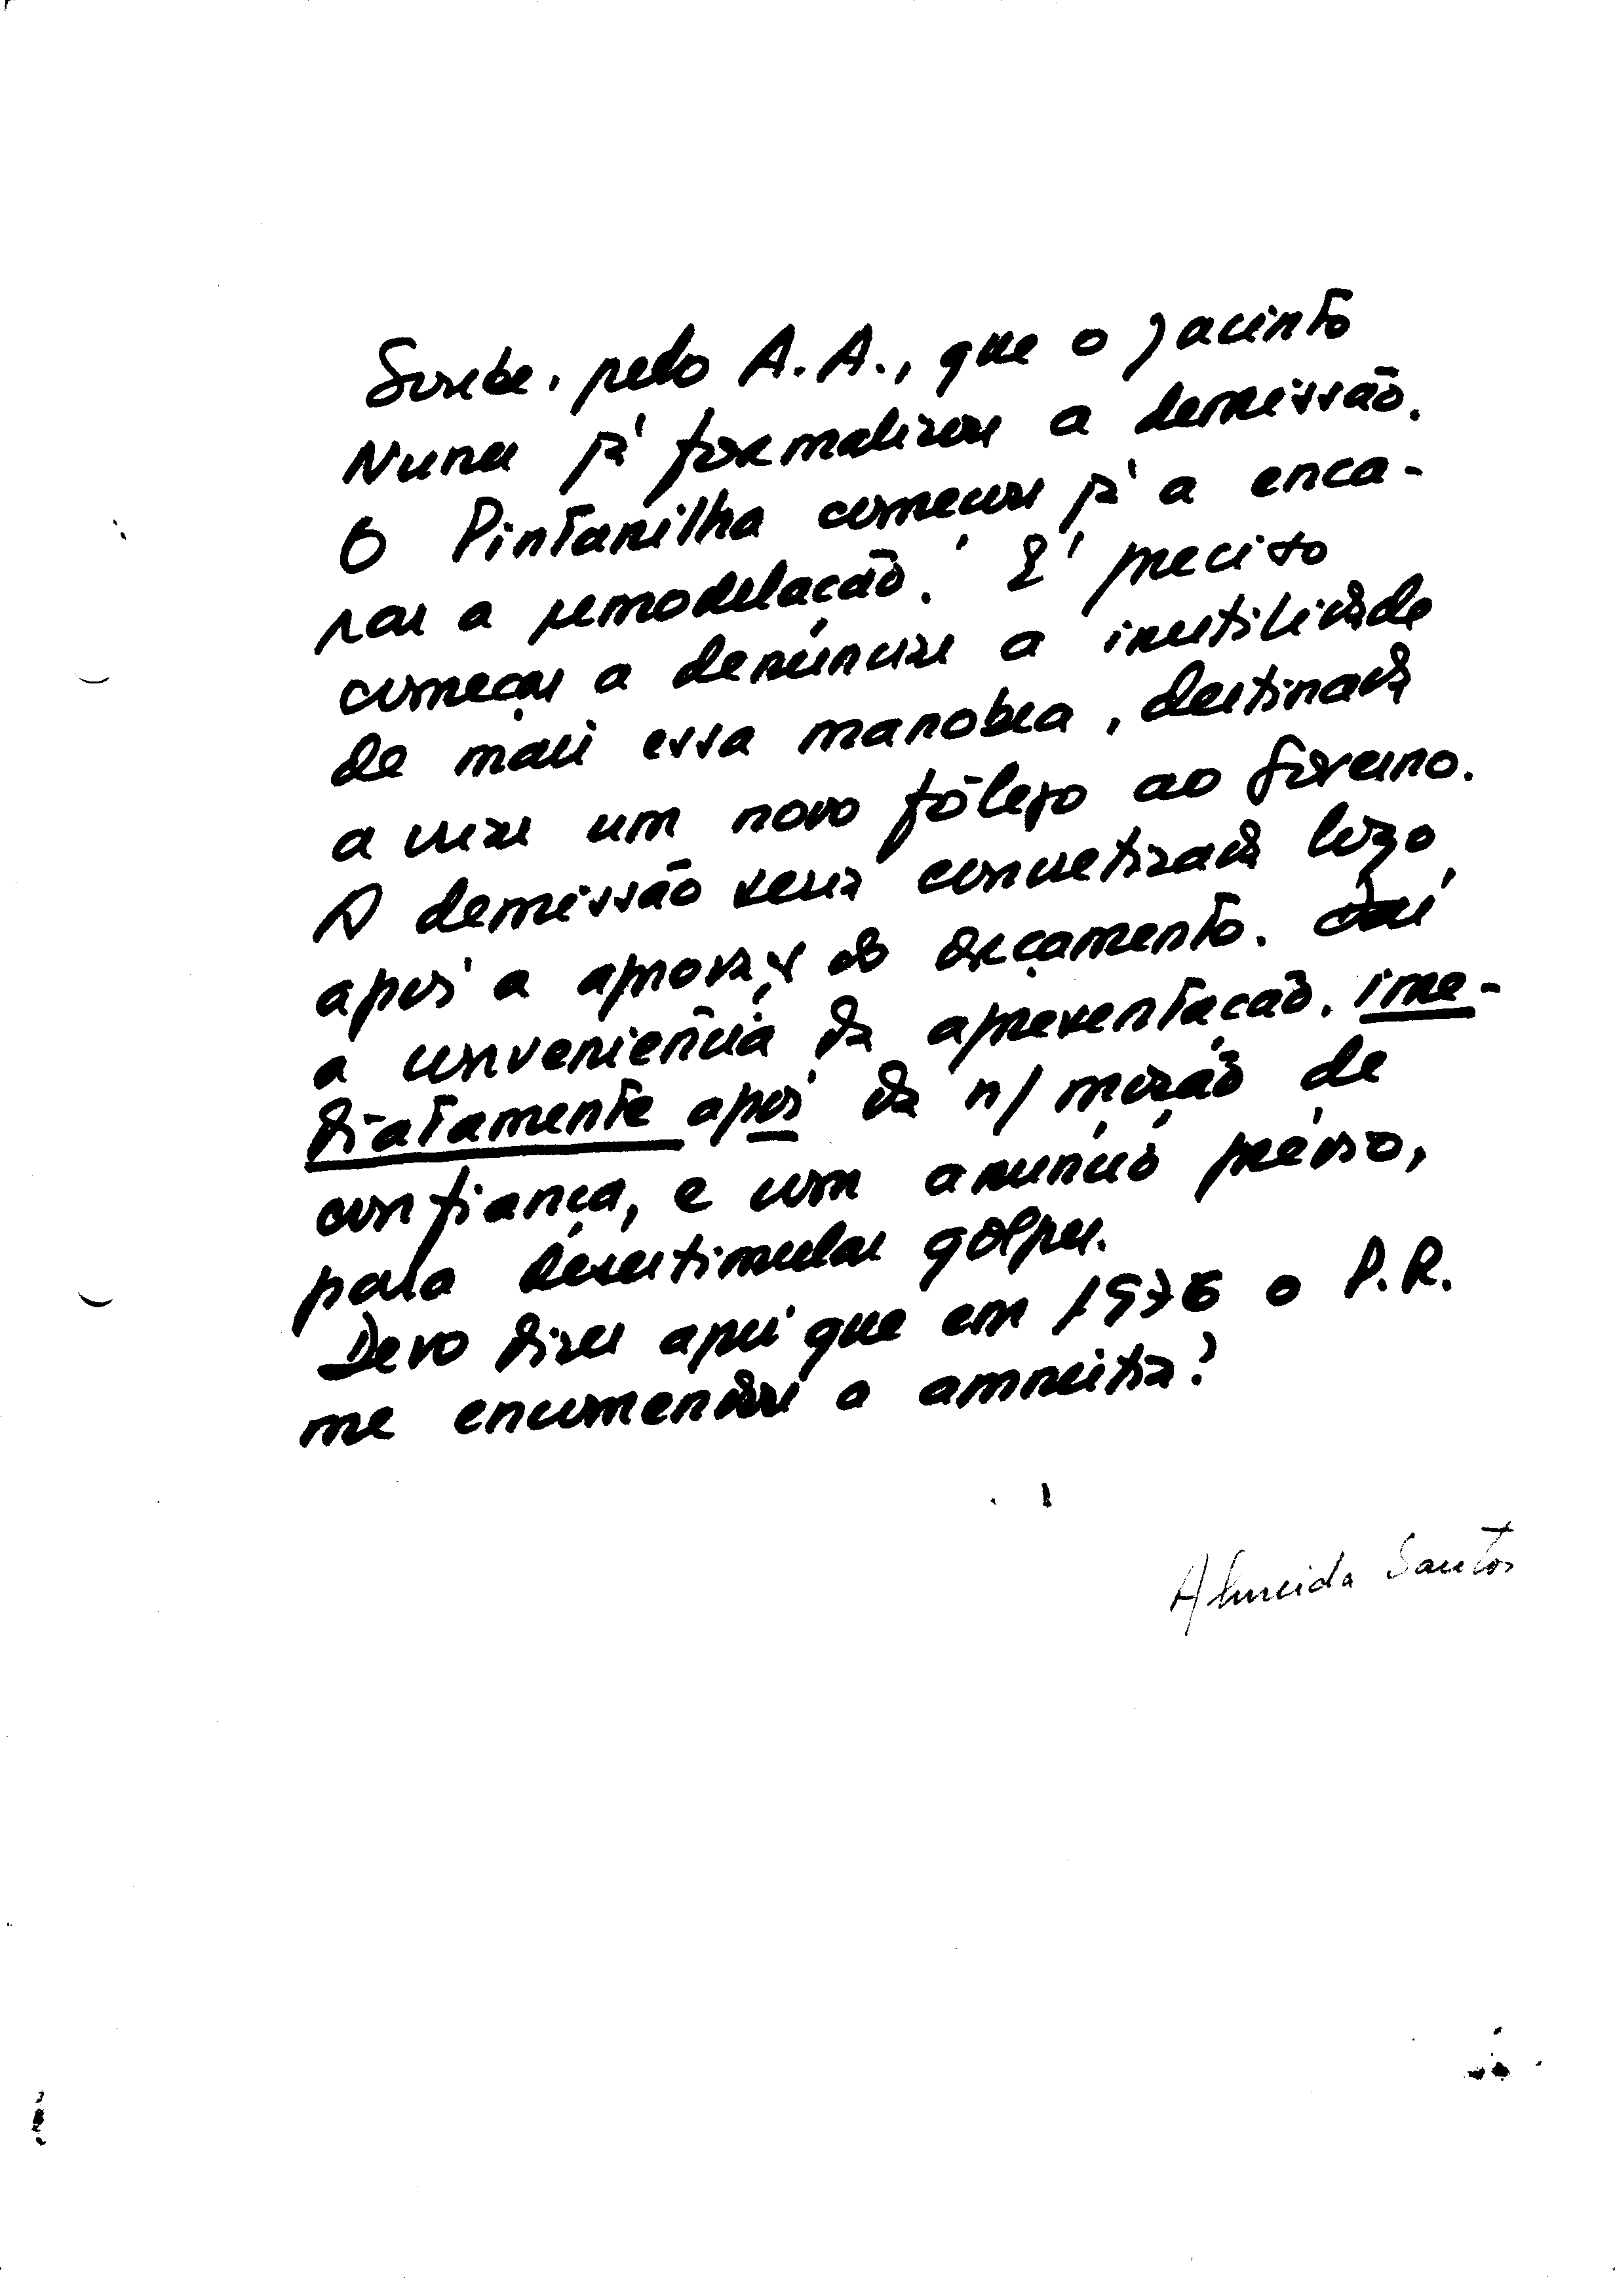 Soube, pelo A.A., que o Jacinto
Nunes já formalizou a demissão.
O Pintasilha começou já a enca-
rar a remodelação. É preciso
começar a denunciar a inutilidade
de mais essa manobra, destinada
a criar um novo fôlego ao Governo.
A demissão será concretizada logo
após a aprovação do orçamento. Daí
a conveniência da apresentação, ime-
diatamente após da n/ moção de
confiança, e com anúncio prévio,
para desestimular golpes.
Devo dizer aqui que em 1976 o P.R.
me encomendou a amnistia?
Almeida Santos